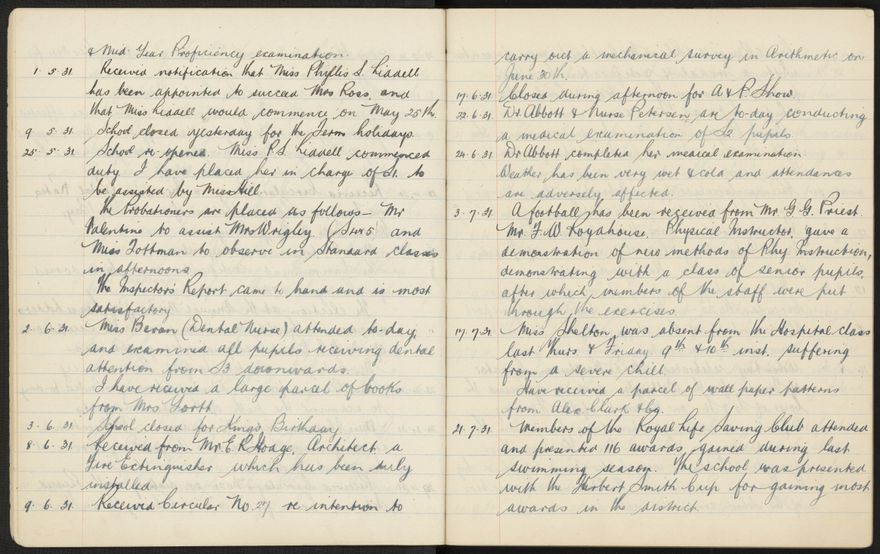 & Mid-Year Proficiency examination.
1. 5. 31. Received notification that Miss Phyllis S. Liddell
has been appointed to succeed Mrs Ross, and
that Miss Liddell would commence on May 25th.
9. 5. 31 School closed yesterday for the Term holidays.
25. 5. 31 School re-opened. Miss P. S. Liddell commenced
duty. I have placed her in charge of S1. to
be assisted by Miss Hill.
The Probationers are placed as follows — Mr
Valentine to assist Mrs Wrigley and
Miss Tottman to observe in Standard classes
in afternoons.
The Inspector's Report came to hand and is most
satisfactory.
2. 6. 31. Miss Baron (Dental Nurse) attended to-day,
and examined all pupils receiving dental
attention from S3 downwards.
I have received a large parcel of books
from Mrs
3. 6. 31. School closed for King's Birthday.
8. 6. 31. Received from Mr E. R. Hoage, Architect a
Fire Extinguisher which has been duly
installed.
9. 6. 31. Received Circular No. 27 re intention to
carry out a mechanical survey in Arithmetic on
June 30th.
17. 6. 31 Closed during afternoon for A & P. Show.
22. 6. 31 Dr Abbott & Nurse Petersen, are to-day conducting
a medical examination of S2 pupils.
24. 6. 31 Dr Abbott completed her medical examination.
Weather has been very wet & cold and attendances
are adversely affected.
3. 7. 31. A football has been received from Mr. G. G. Priest.
Mr. F. W. Royahouse, Physical Instructor, gave a
demonstration of new methods of Phy Instruction,
demonstrating with a class of senior pupils,
after which members of the staff were put
through the exercises.
17. 7. 31 Miss Skelton, was absent from the Hospital class
last Thurs & Friday 9th & 10th inst, suffering
from a severe chill.
Have received a parcel of wall paper patterns
from Alex Clark & Co.
21. 7. 31. Members of the Royal Life Saving Club attended
and presented 116 awards, gained during last
swimming season. The school was presented
with the Herbert Smith Cup for gaining most
awards in the district.